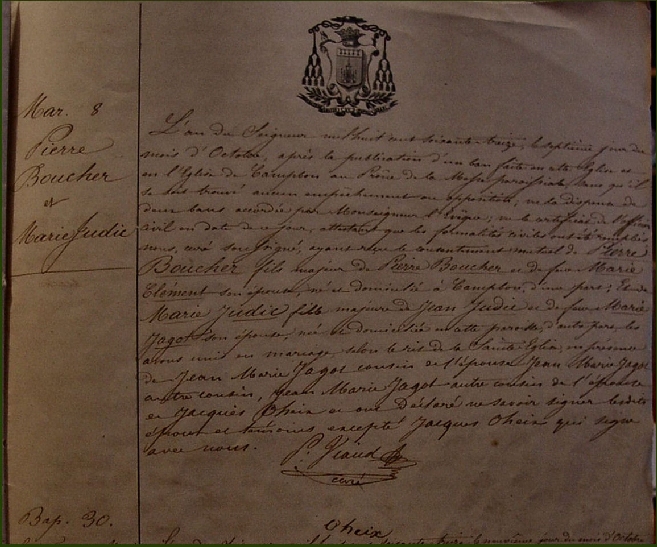 Mar. 8
Pierre
Boucher
et
Marie Judic
L'an du Seigneur mil huit cent soixante-treize, le septième jour du
mois d'Octobre, après la publication d'un ban faite en cette Eglise et
en l'Eglise de Campbon au Prône de la Messe paroissiale sans qu'il
se soit trouvé aucun empêchement ou opposition; vu la dispense de
deux bans accordée par Monseigneur l'Evêque; vu le certificat de l'officier
civil en date de ce jour, attestant que les formalités civiles ont été remplies
nous, curé soussigné, ayant reçu le consentement mutuel de Pierre
Boucher fils majeur de Pierre Boucher et de feue Marie
Clément son épouse, né et domicilié à Campbon, d'une part; et de
Marie Judic fille majeure de Jean Judic et de feue Marie
Jagot son épouse, née et domiciliée en cette paroisse, d'autre part, les
avons unis en mariage, selon le rit de la Sainte Eglise, en présence
de Jean Marie Jagot cousin de l'épouse Jean Marie Jagot
autre cousin, Jean Marie Jagot autre cousin de l'épouse
et Jacques Oheix et ont déclaré ne savoir signer lesdits
époux et témoins, excepté Jacques Oheix qui signe
avec nous.
P. Viaud
curé
Oheix
Bap. 30.